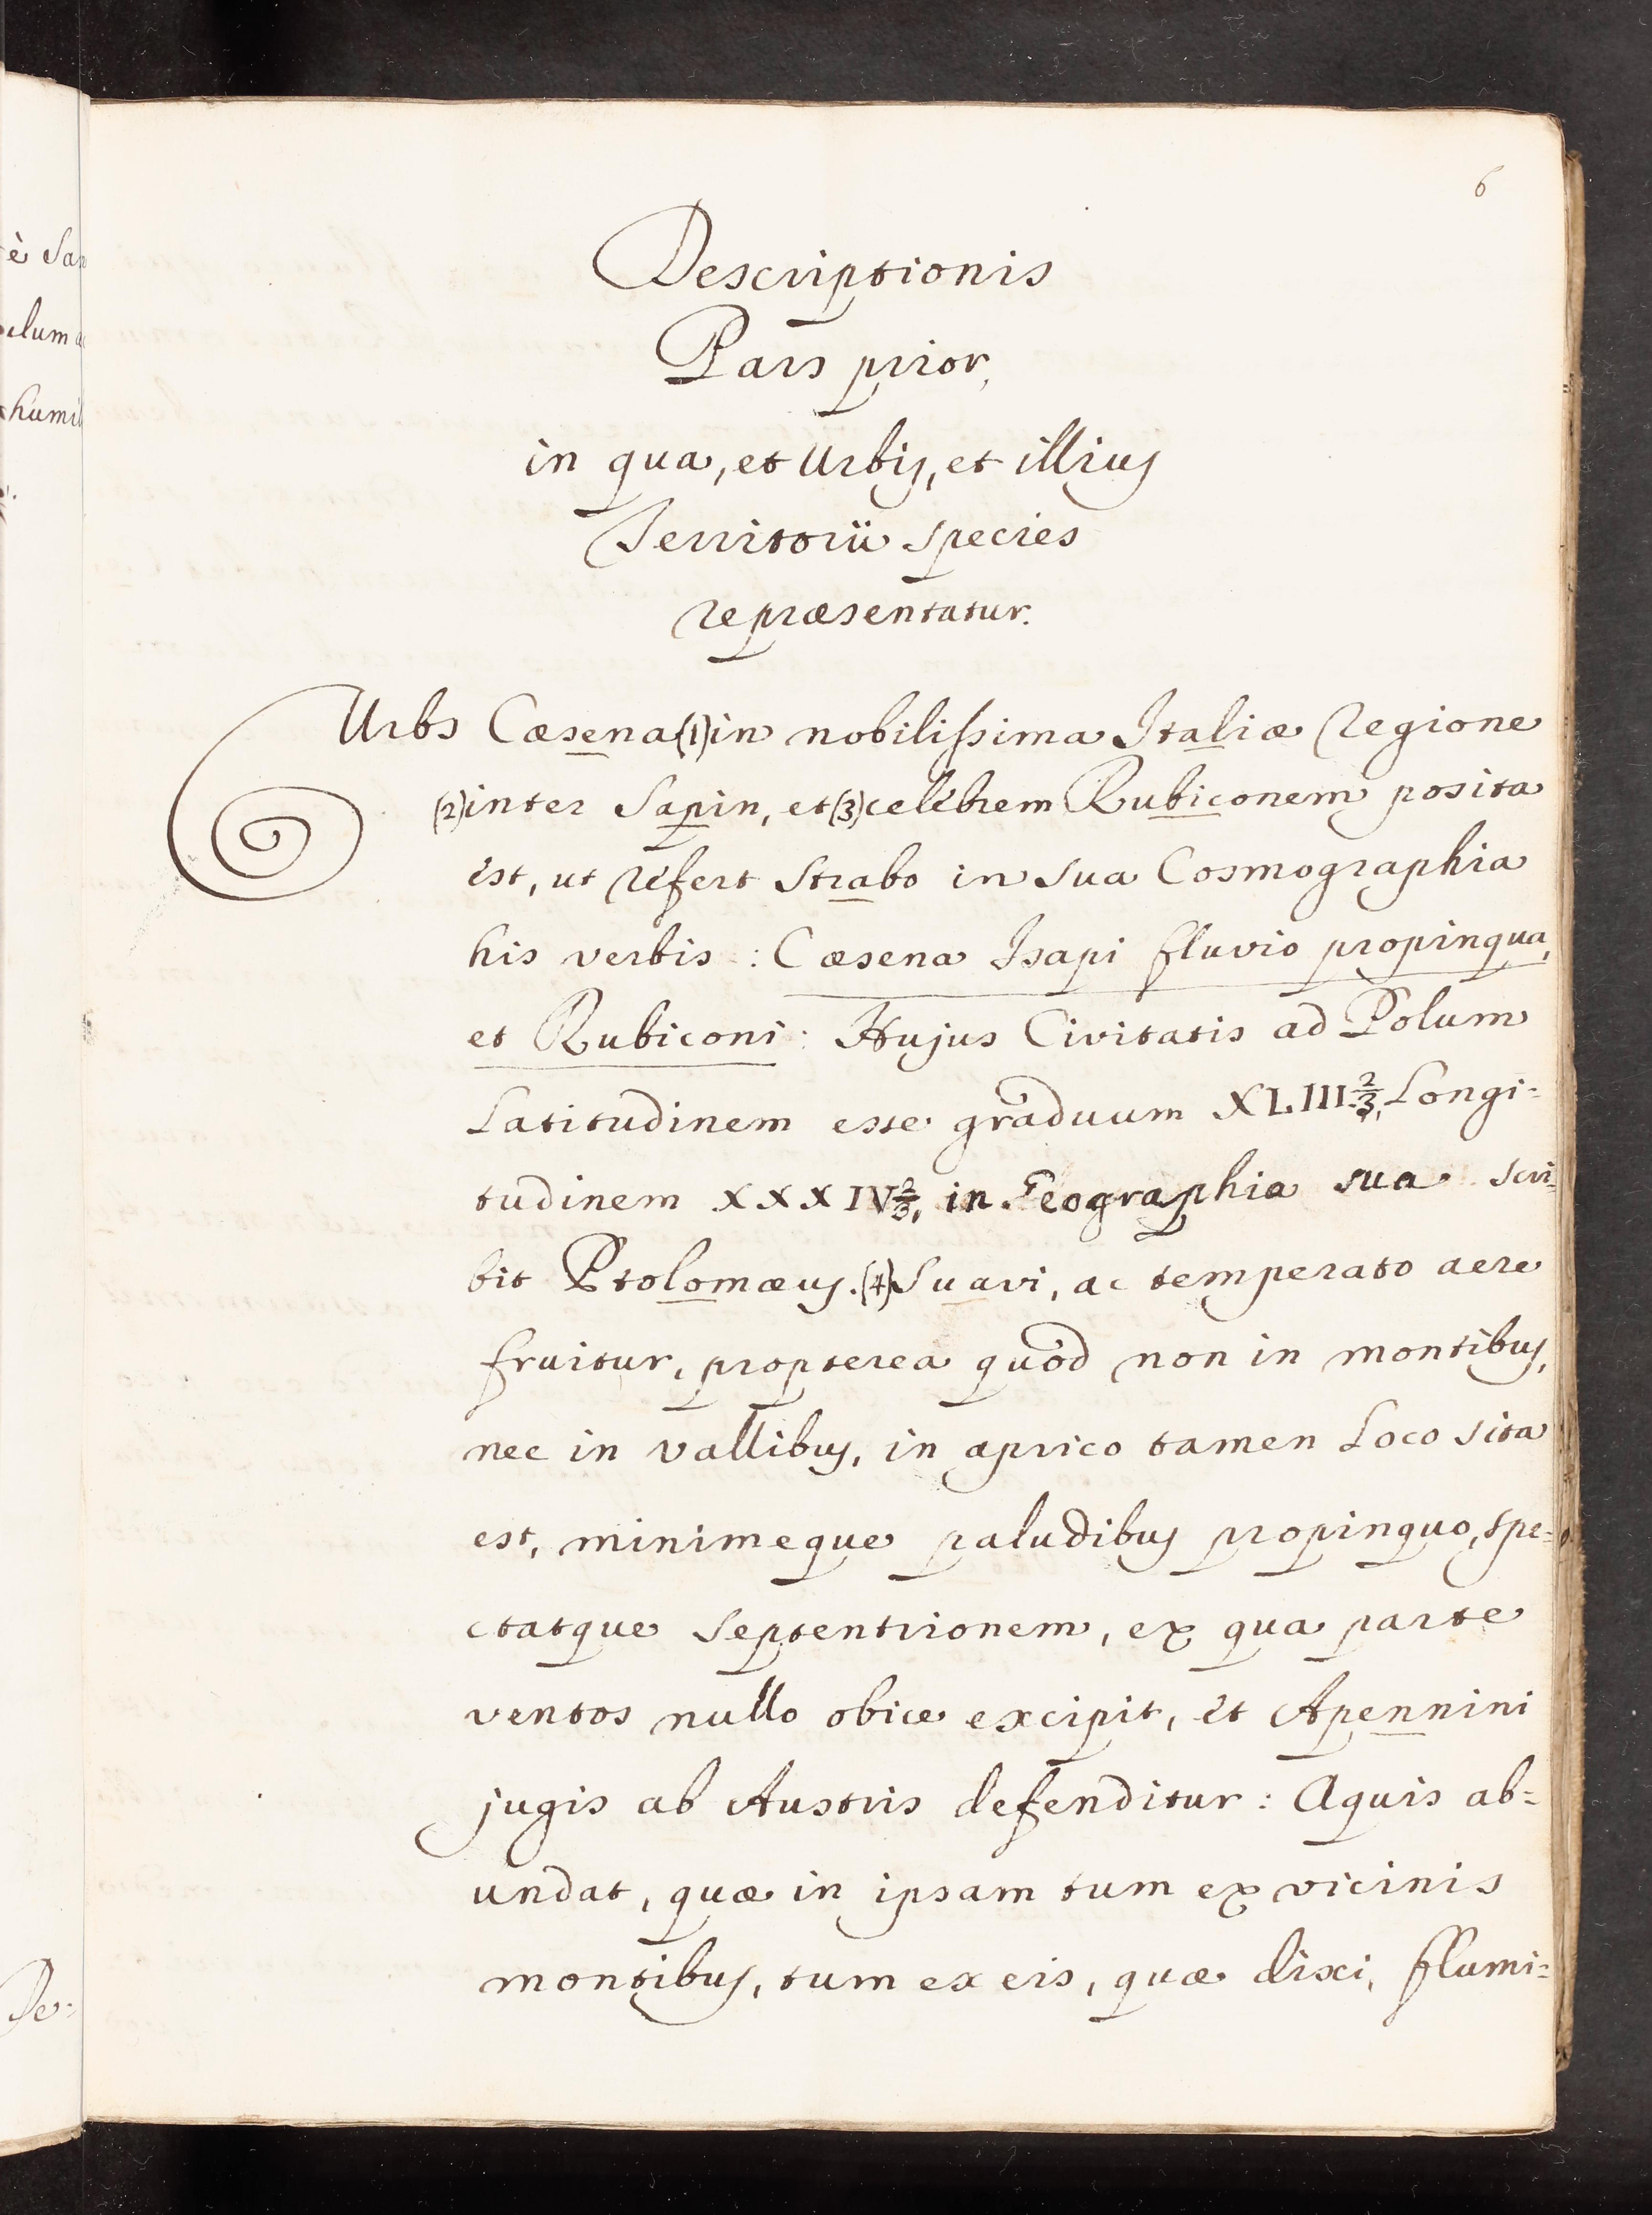 6
Descriptionis
Pars prior,
in qua, et Urbis, et illius
Territorii species
repræsentatur.
Urbs Cæsena (1) in nobilissima Italiæ Regione
(2) inter Sapin, et (3) celebrem Rubiconem posita
est, ut refert Strabo in sua Cosmographia
his verbis: Cæsena Isapi fluvio propinqua,
et Rubiconi: Hujus Civitatis ad Polum
Latitudinem esse graduum XLIII. 2/3, Longi=
tudinem XXXIV 2/3, in Geographia sua scri=
bit Ptolomæus. (4) Suavi, ac temperato aere
fruitur, propterea quòd non in montibus,
nec in vallibus, in aprico tamen Loco sita
est, minimeque paludibus propinquo, spe=
ctatque Septentrionem, ex qua parte
ventos nullo obice excipit, et Apennini
jugis ab Austris defenditur: Aquis ab=
undat, quæ in ipsam tum ex vicinis
montibus, tum ex eis, quæ dixi, flumi=
è San
elum
humil
De=